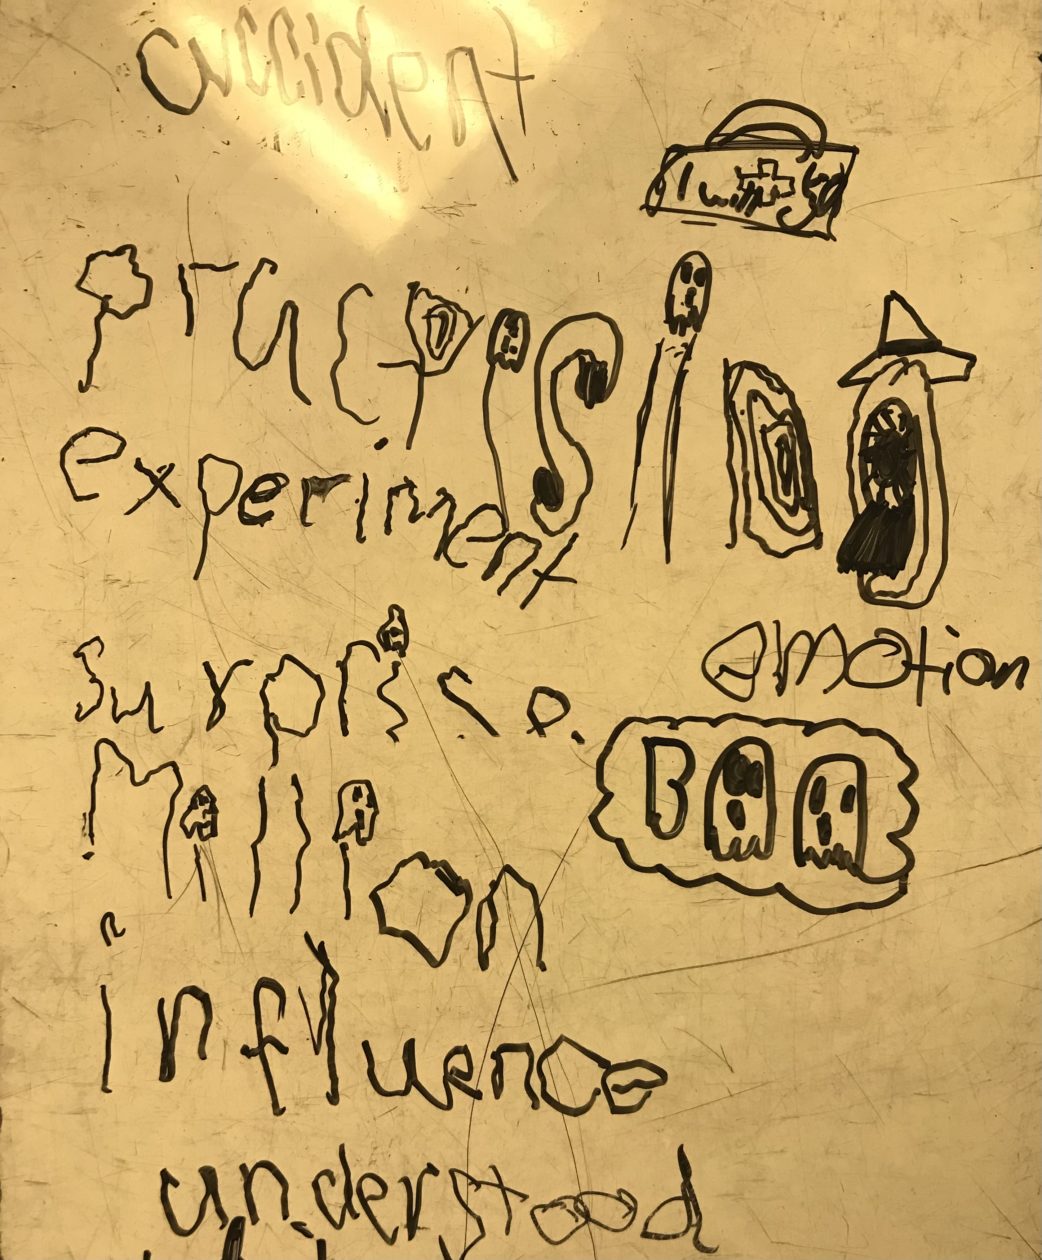 accident
I will
experiment
emotion
surprise.
Million
BOO
influence
understood